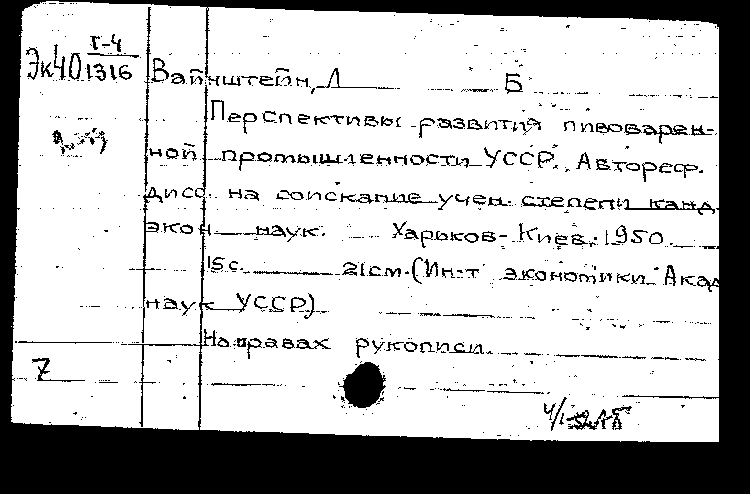 Г-4
Эк40 1316 Вайнштейн, Л Б
Перспективы развития пивоварен-
ной промышленности УССР. Автореф.
дисс. на соискание учен. степени канд.
экон наук. Харьков-Киев, 1950.
15 с. 21 см. (Ин-т экономики Акад
наук УССР)
На правах рукописи.
7